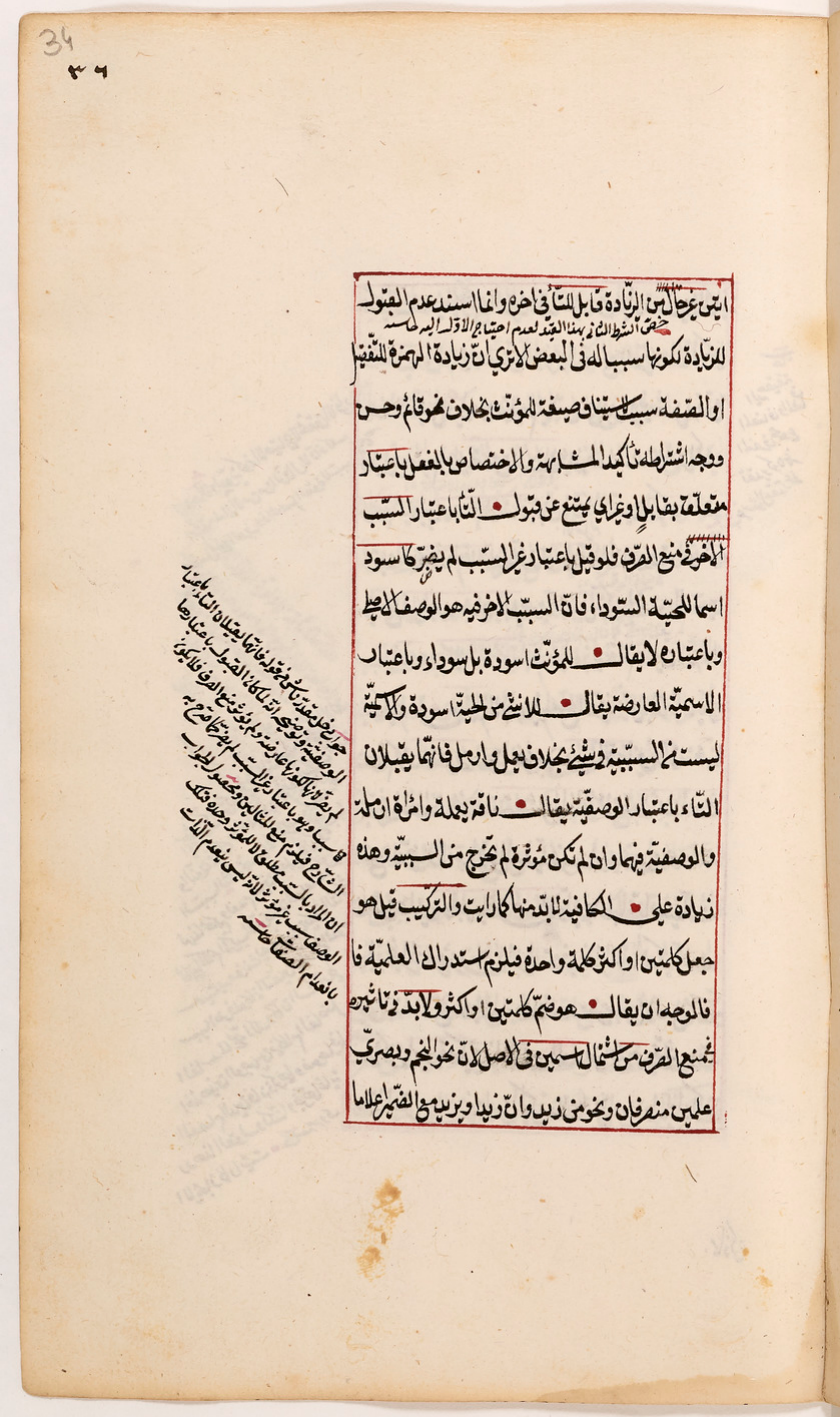 34
٣٦
اتين غير حال من الزيادة قابل للتأ فى اخره وانما اسند عدم القبول
خص الشرط الثانى بهذا القيد لعدم احتياج الاول اليه
للزيادة لكونها سببا له فى البعض الاترى ان زيادة الهمزة للتفضيل
او الصفة سبب لاستيناف صيغة للمؤنث بخلاف نحو قائم وحسن
ووجه اشتراطه تأكيد المشابهة والاختصاص بالفعل باعتبار
متعلق بقابل او غير اى يمتنع عن قبول التأ باعتبار السبب
الاخر فى منع الصرف فلو قبل باعتبار غير السبب لم يضر كاسود
اسما للحية السوداء فان السبب الاخر فيه هو الوصف الاصلى
وباعتباره لا يقال للمؤنث اسودة بل سوداء وباعتبار
الاسمية العارضة يقال للانثى من الحية اسودة والاسمية
ليست من السببية فى شيئ بخلاف يعمل وارمل فانهما يقبلان
التاء باعتبار الوصفية يقال ناقة يعملة وامرأة ارملة
والوصفية فيهما وان لم تكن مؤثرة لم تخرج من السببية وهذه
زيادة على الكافية لابد منها كما رايت والتركيب قيل هو
جعل كلمتين او اكثر كلمة واحدة فيلزم استدراك العلمية فا
فالوجه ان يقال هو ضم كلمتين او اكثر ولابد فى تاثيره
فى منع الصرف من اشتمال اسمين فى الاصل لان نحو النجم وبصرى
علمين منصرفان ونحو من زيد وان زيدا ويزيد مع الضمير اعلاما
باعتبار
الوصفية
لم يضر
كاسود وهو باعتبار غير السبب لم يضر كما صرح به
الشارح فيلزم منع المثالين
ان المراد بالسبب مطلق لا المؤثر وحده
الوصف سبب غير مؤثر لانه ليس ينعدم الذات
بانعدام الصفة